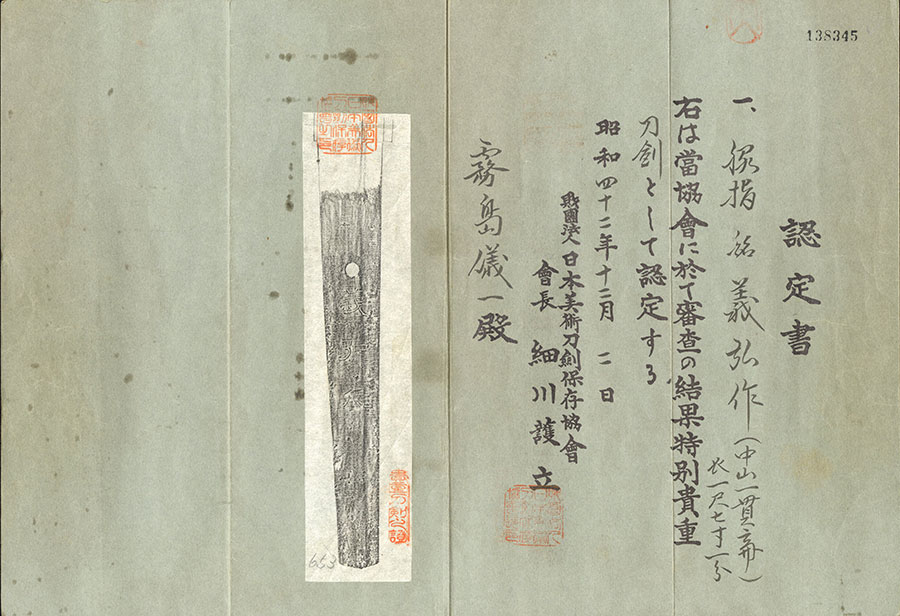 138345
認定書
一、脇指 銘 義弘作(中山一貫斎)
長一尺七寸一分
右は當協會に於て審査の結果特別貴重
刀劍として認定する
昭和四十二年十二月 二 日
財團法人日本美術刀劍保存協會
會長 細川護立
霧島儀一殿
653